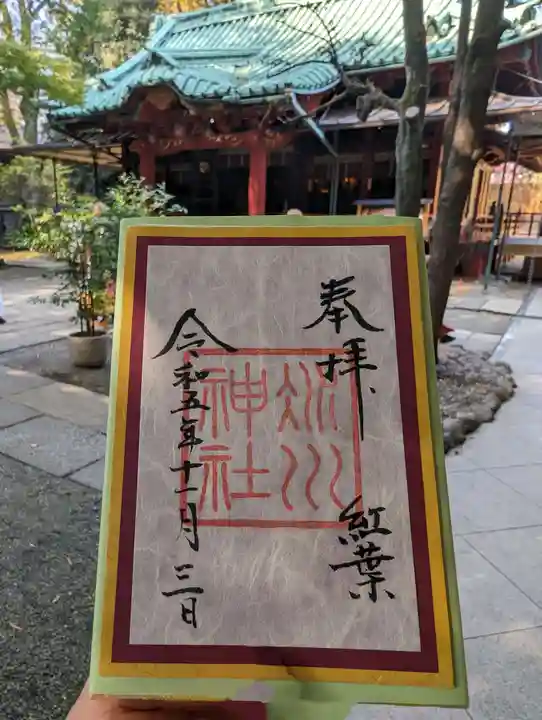 奉拝、 紅葉
氷川
神社
令和五年十一月三日